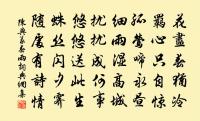 花盡春猶冷
羈心只自驚
孤鶯啼永晝
細雨濕高城
擾擾成何事
悠悠送此生
蛛絲閃夕霽
隨處有詩情
陳與義春雨詞典網集